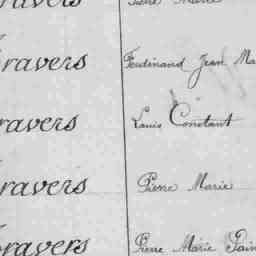 ravers Pierre Marie
ravers Ferdinand Jean Ma
ravers Louis Constant
ravers Pierre Marie
ravers Pierre Marie